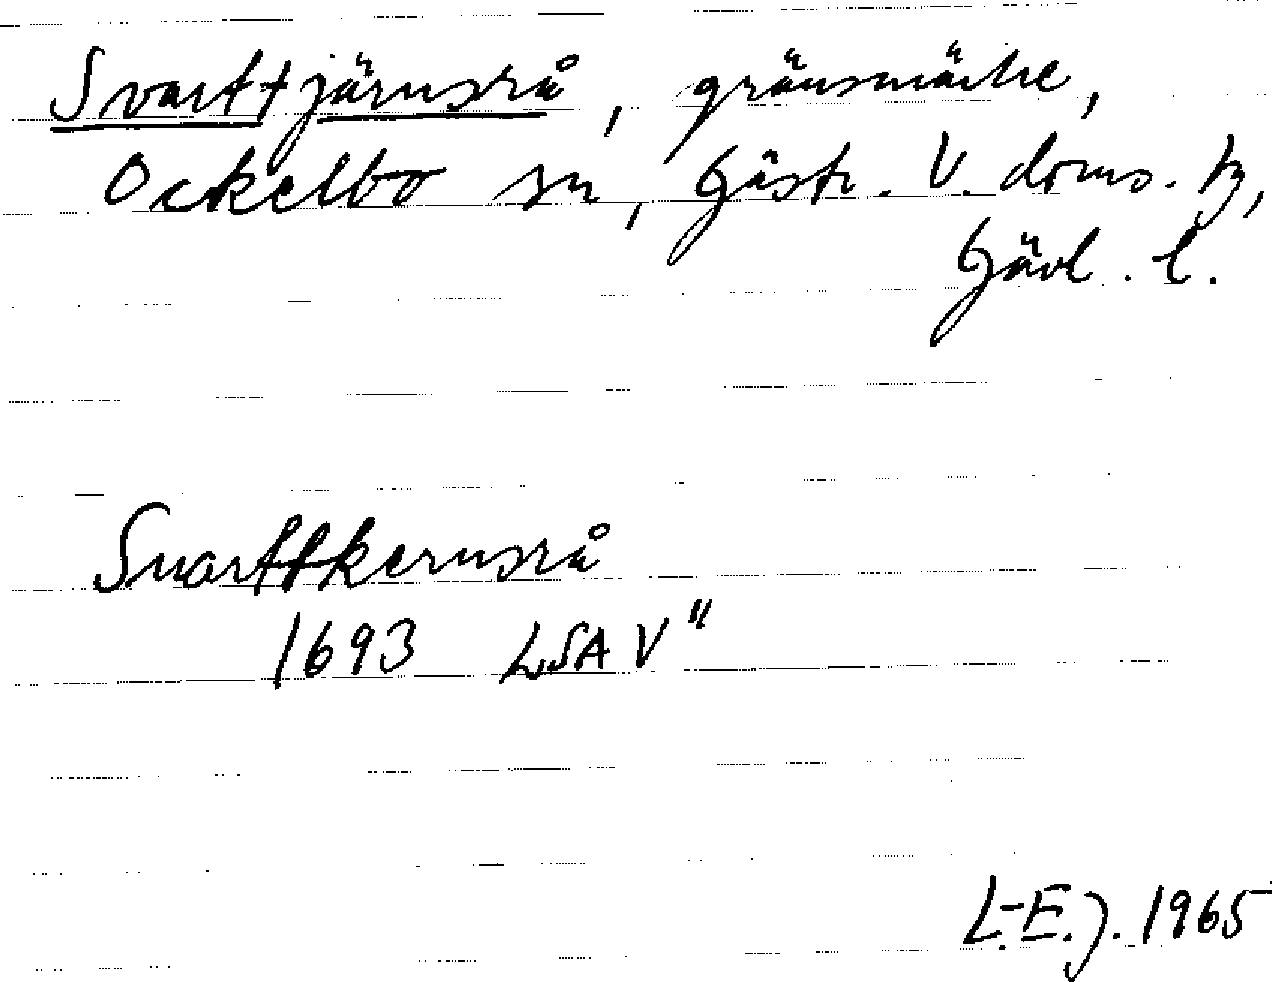 Svarttjärnsrå, gränsmärke,
Ockelbo sn, Gästr. V. doms. tg,
Gävl. l.
Suarttkernsrå
1693 LSA V"
L.-E.J. 1965